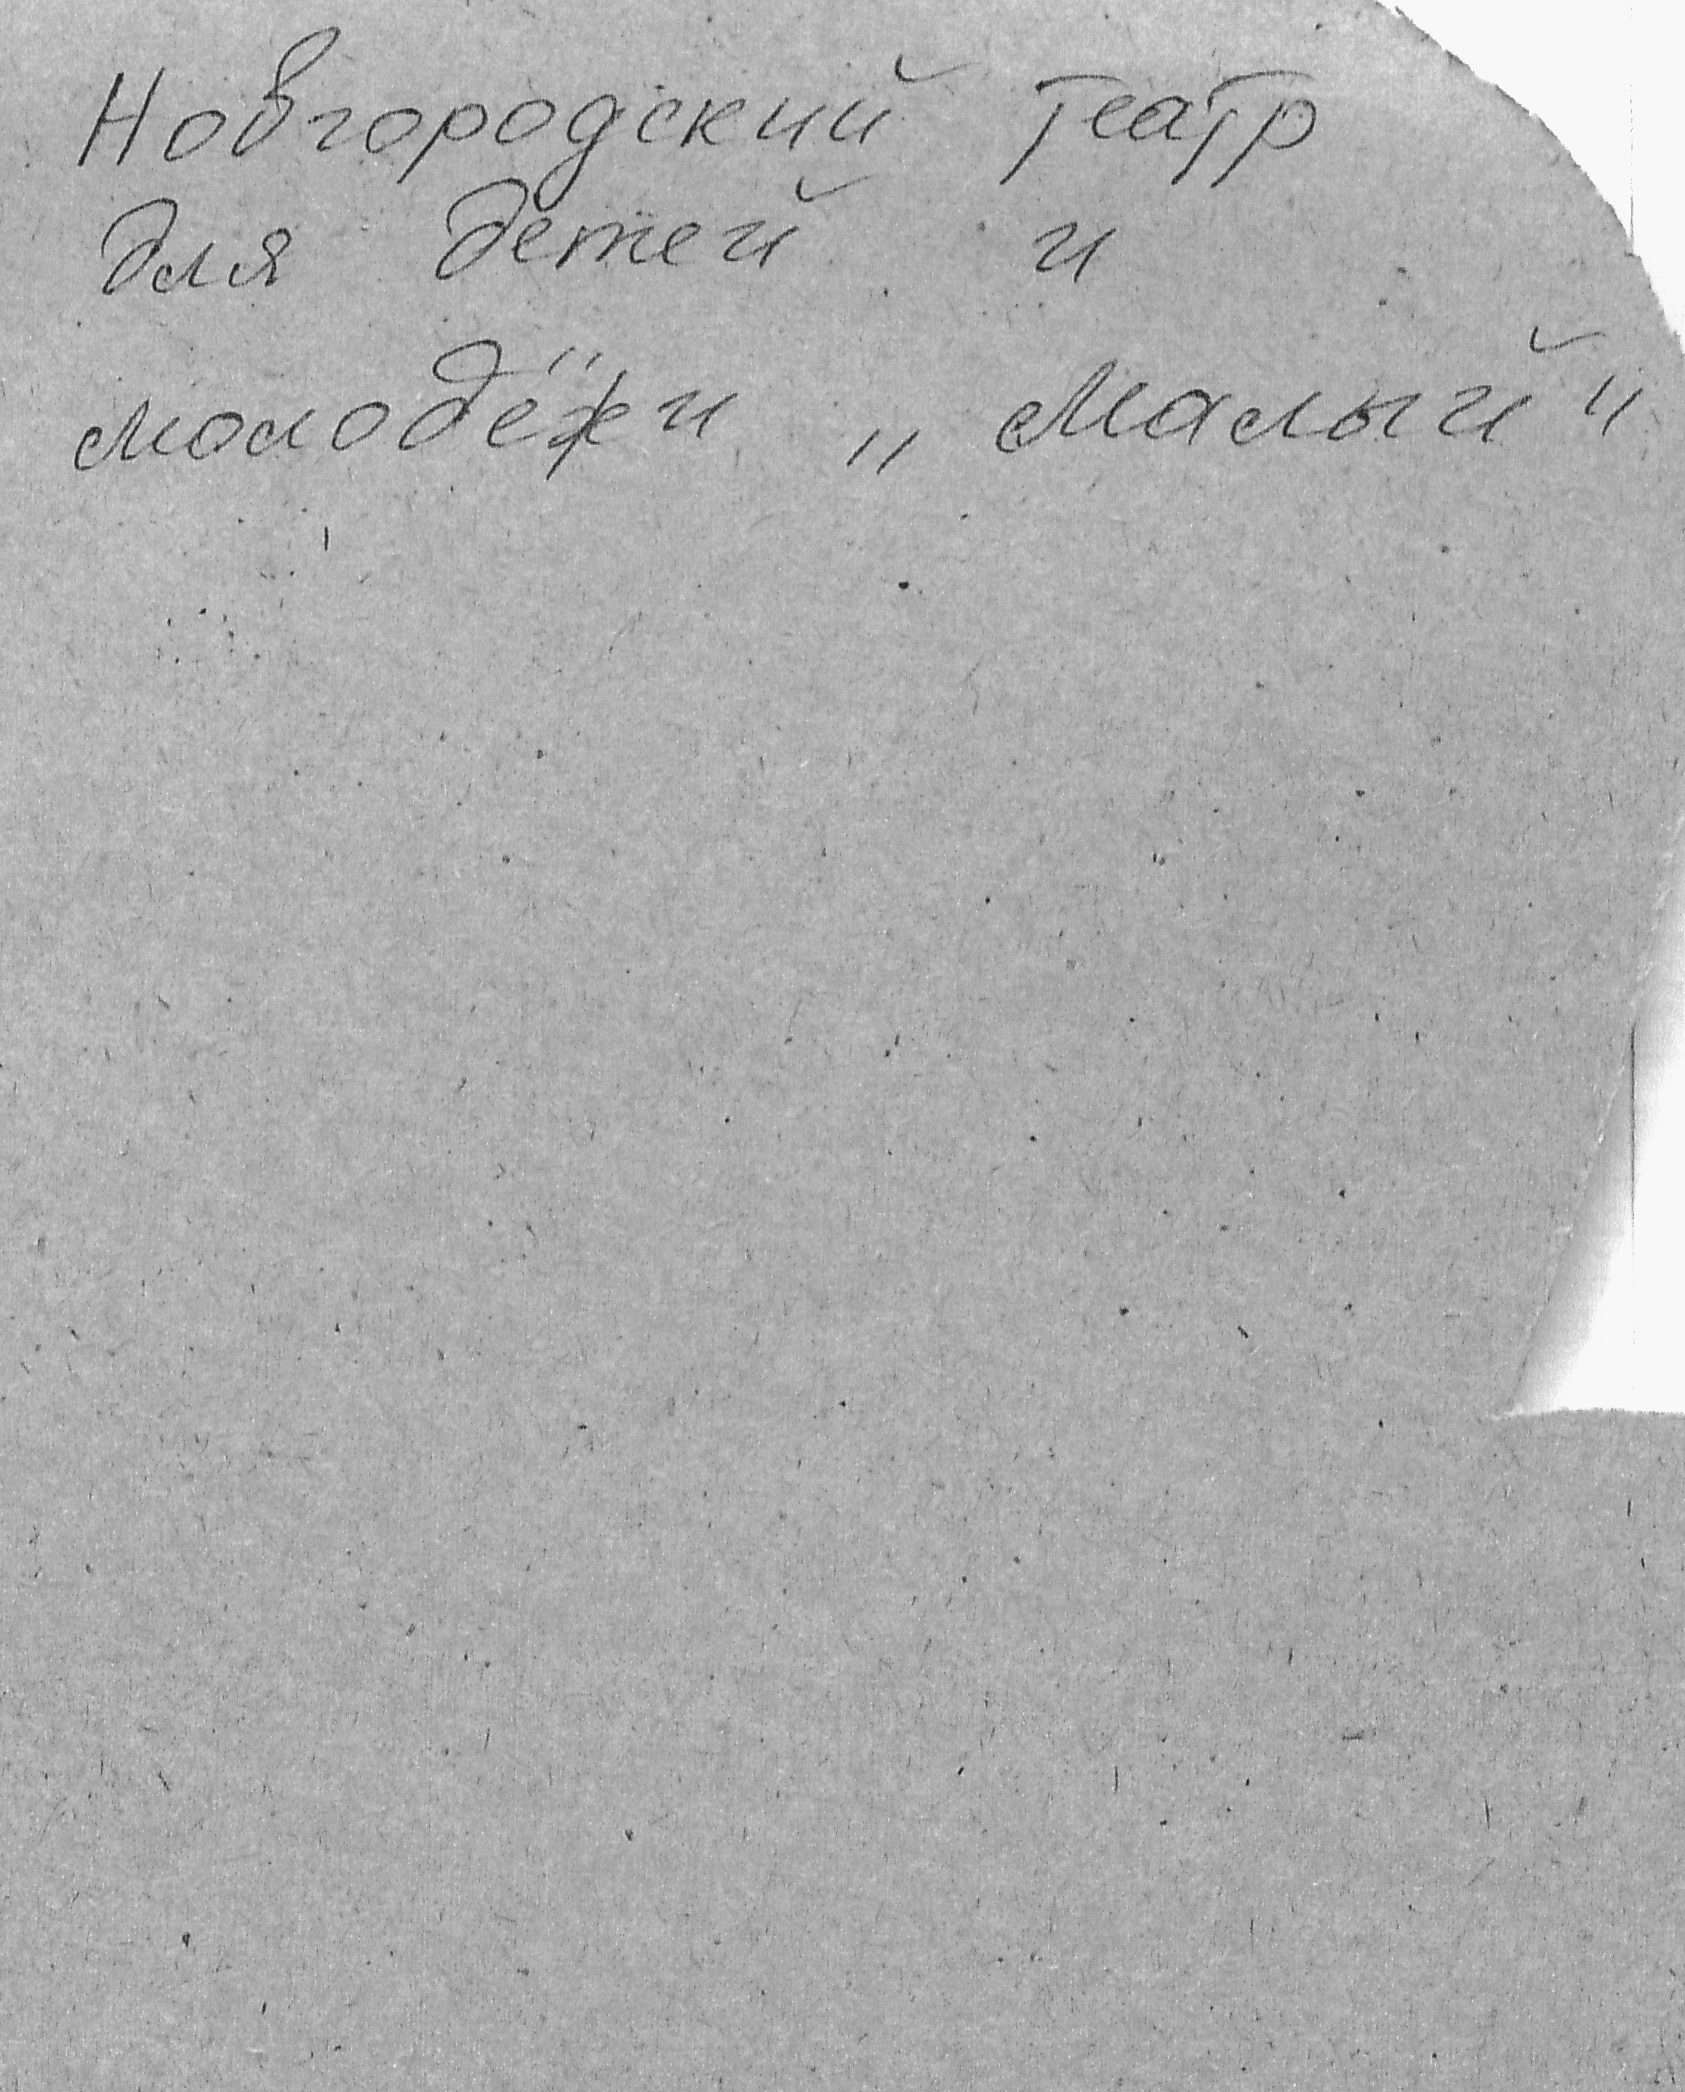 Новгородский театр
для детей и
молодёжи „Малый"